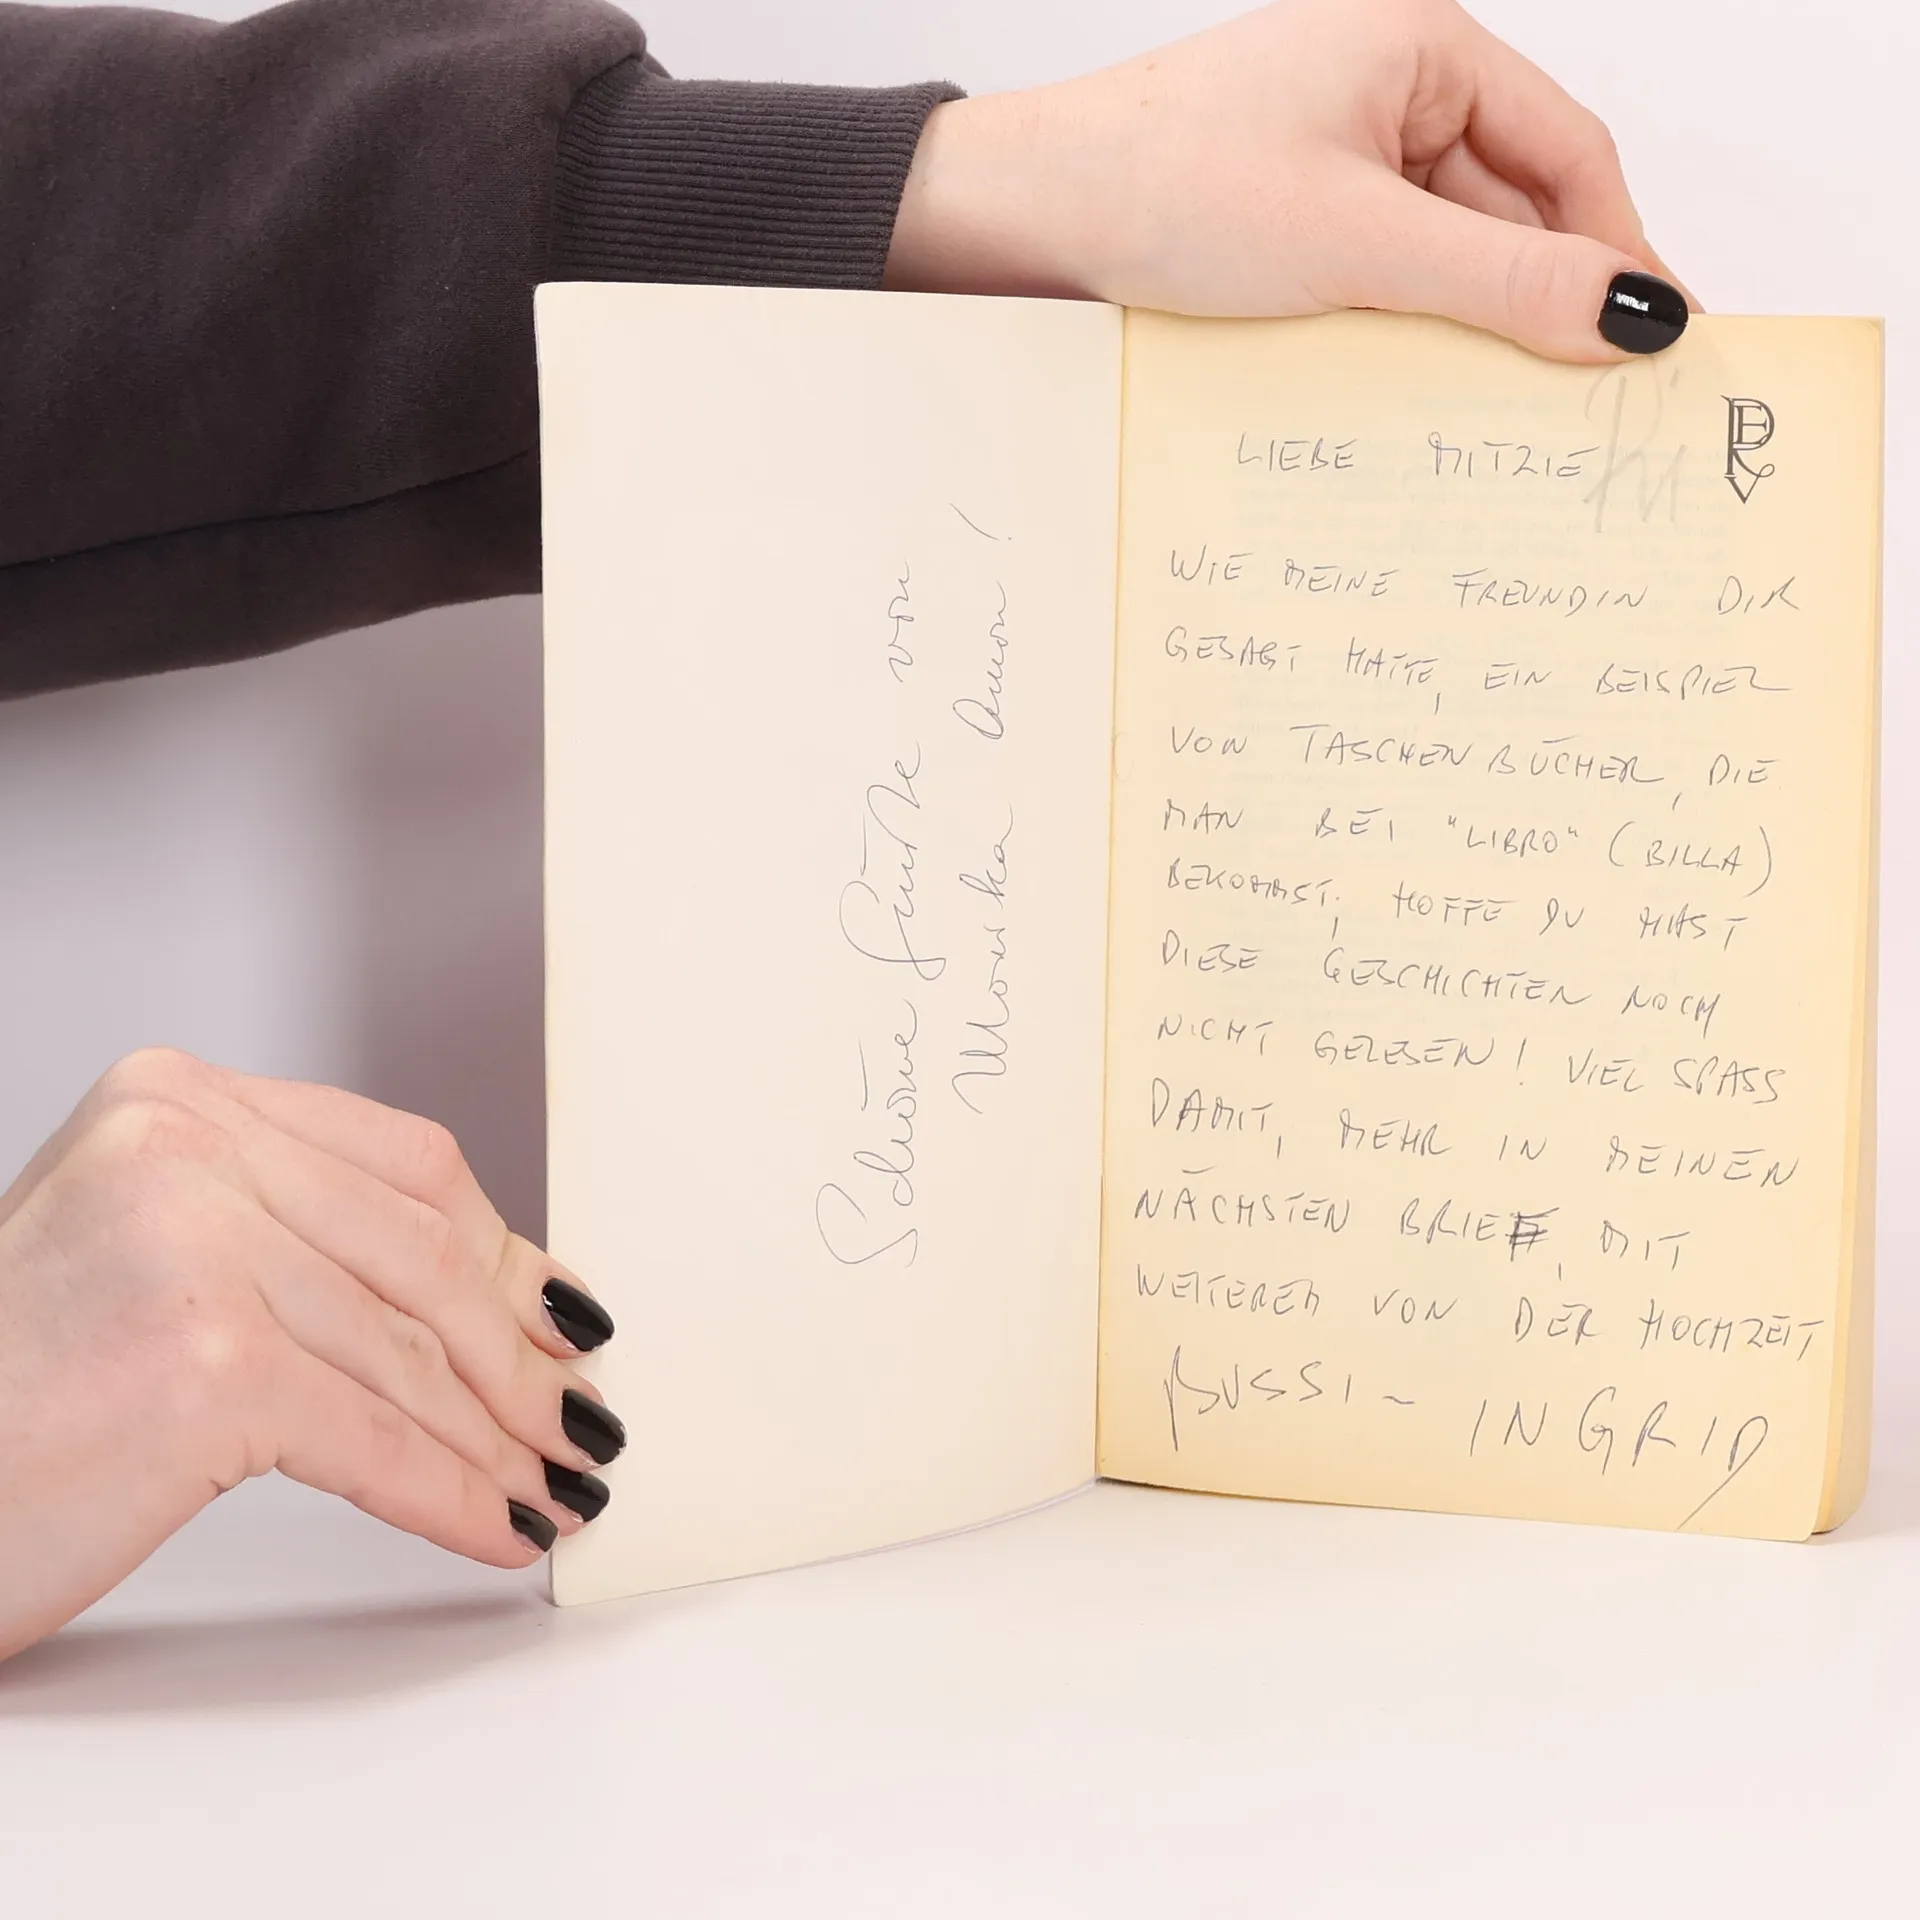 Schöne Grüße von
Monika Anon!
LIEBE MITZIE
WIE MEINE FREUNDIN DIR
GESAGT HATTE, EIN BEISPIEL
VON TASCHENBÜCHER, DIE
MAN BEI "LIBRO" (BILLA)
BEKOMMST; HOFFE DU HAST
DIESE GESCHICHTEN NOCH
NICHT GELESEN! VIEL SPASS
DAMIT, MEHR IN MEINEN
NÄCHSTEN BRIEF, MIT
WEITEREM VON DER HOCHZEIT
BUSSI - INGRID